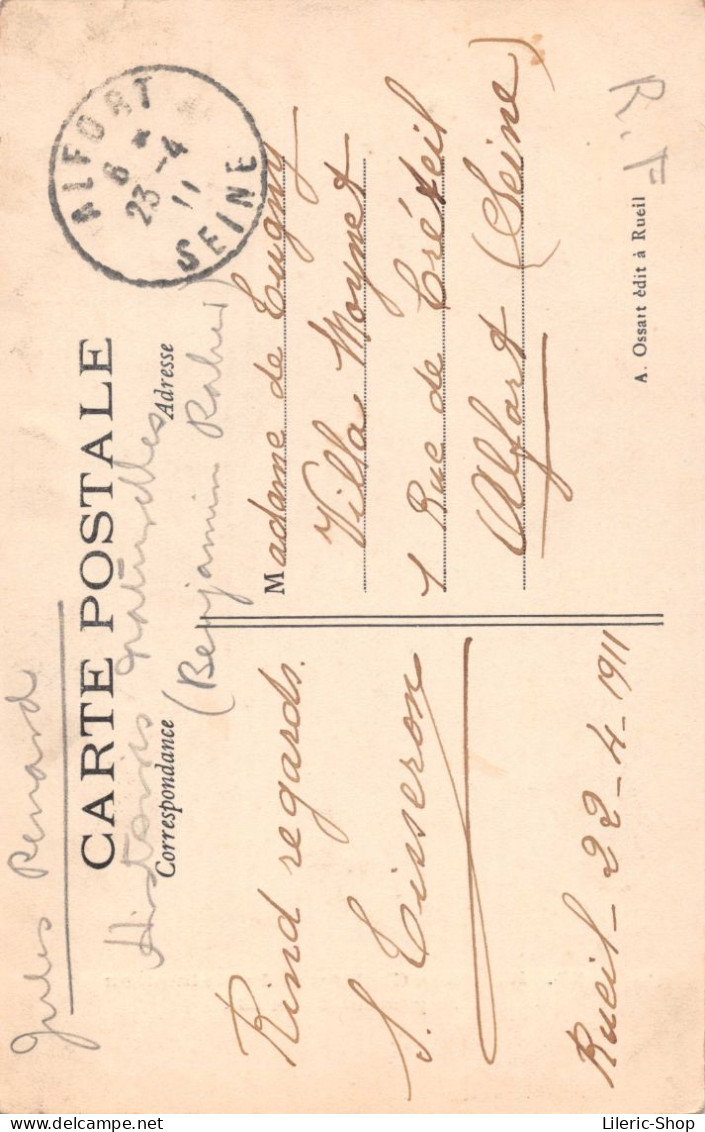 Jules Renard
CARTE POSTALE
Histoires Naturelles
Correspondance
Adresse
(Benjamin
Kind regards.
S. Tisseron
Rueil - 22 - 4 - 1911
Madame de Cugny
Villa Moynet
1 Rue de Créteil
Alfort (Seine)
ALFORT
6 *
23 - 4
11
SEINE
R. F
A. Ossart édit à Rueil
Lileric-Shop